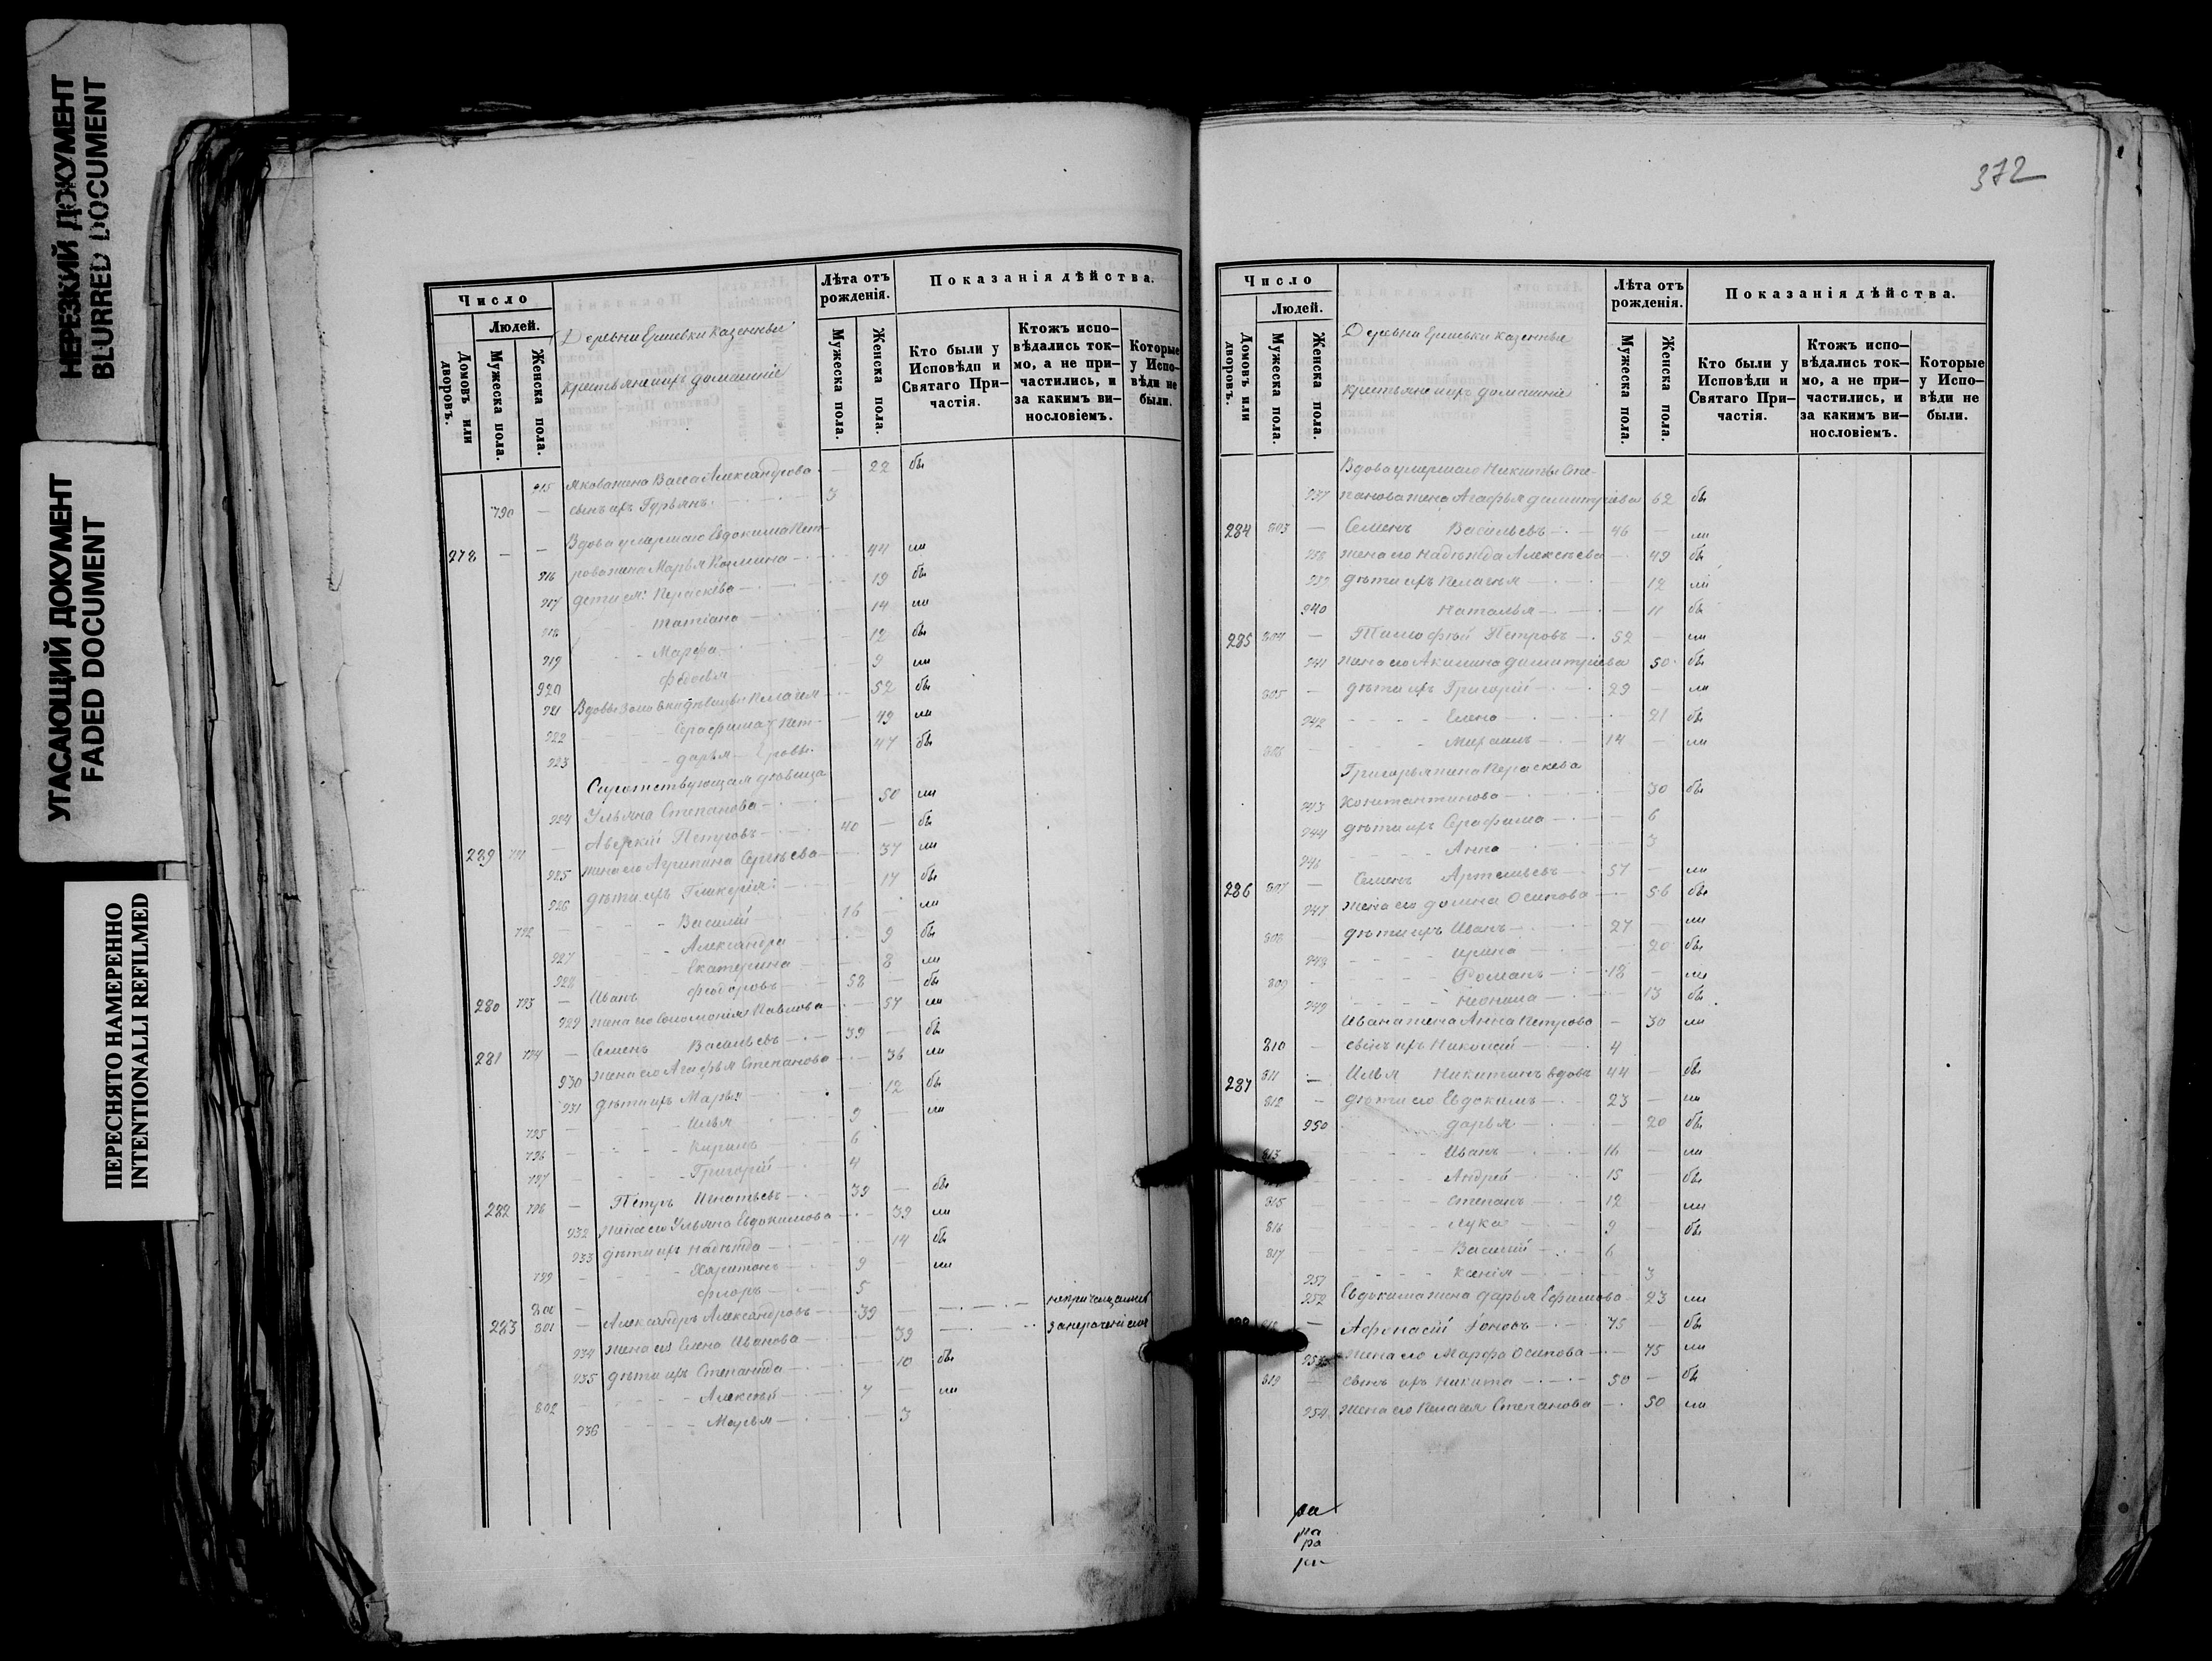 НЕРЕЗКИЙ ДОКУМЕНТ
BLURRED DOCUMENT
УГАСАЮЩИЙ ДОКУМЕНТ
FADED DOCUMENT
ПЕРЕСНЯТО НАМЕРЕННО
INTENTIONALLI REFILMED
Число
Людей.
Домовъ или дворовъ.
Мужеска пола.
Женска пола.
Деревни Ершевки казенные
крестьяне и ихъ домашніе
Лѣта отъ рожденія.
Мужеска пола.
Женска пола.
Показанія дѣйства.
Кто были у Исповѣди и Святаго При-
частія.
Ктожъ испо-
вѣдались ток-
мо, а не при-
частились, и
за какимъ ви-
нословіемъ.
Которые
у Испо-
вѣди не
были.
915 жена Васса Александрова 22 бы
790 — сынъ ихъ Гурьянъ 3
278 — — Вдова умершаго Евдокима Пет-
916 рова жена Марья 44 ли
917 дети ея: Пераскева 19 бы
918 Татіана 14 ли
919 Марфа 12 бы
920 Федосья 9 ли
921 Вдовы золовки дѣвицы Пелагея 52 бы
922 Серафима Пет- 49 ли
923 Дарья ровы 47 бы
Сиротствующая дѣвица
924 Ульяна Степанова 50 ли
289 791 — Аверкій Петровъ 40 — бы
925 жена его Агрипина Сергѣева 37 ли
926 дѣти ихъ Гликерія 17 бы
792 — Василій 16 — ли
927 Александра 9 бы
928 Екатерина 8 ли
280 793 — Иванъ Феодоровъ 58 — бы
929 жена его Соломонія Павлова 57 ли
281 794 — Семенъ Васильевъ 39 — бы
930 жена его Агафья Степанова 36 ли
931 дѣти ихъ Марья 12 бы
795 — Илья 9 — ли
796 — Кирилъ 6
797 — Григорій 4
282 798 — Петръ Игнатьевъ 39 — бы
932 жена его Ульяна Евдокимова 39 ли
933 дѣти ихъ Надежда 14 бы
799 — Харитонъ 9 — ли
800 — Флоръ 5
283 801 — Александръ Александровъ 39
934 жена его Елена Иванова 39
935 дѣти ихъ Степанида 10 бы
802 — Алексѣй 7 — ли
936 Марья 3
372
Число
Людей.
Домовъ или дворовъ.
Мужеска пола.
Женска пола.
Деревни Ершевки казенные
крестьяне и ихъ домашніе
Лѣта отъ рожденія.
Мужеска пола.
Женска пола.
Показанія дѣйства.
Кто были у
Исповѣди и
Святаго При-
частія.
Ктожъ испо-
вѣдались ток-
мо, а не при-
частились, и
за какимъ ви-
нословіемъ.
Которые
у Испо-
вѣди не
были.
Вдова умершаго Никиты Сте-
937 панова жена Агафья Димитріева 62 бы
284 803 — Семенъ Васильевъ 46 — ли
938 жена его Надежда Алексѣева 49 бы
939 дѣти ихъ Пелагея 12 ли
940 Наталья 11 бы
285 804 — Тимофѣй Петровъ 52 — ли
941 жена его Акилина Димитріева 50 бы
805 — дѣти ихъ Григорій 29 — ли
942 Елена 21 бы
806 Михаилъ 14 — ли
Григорья жена Пераскева
943 Константинова 30 бы
944 дѣти ихъ Серафима 6
946 Анна 3
286 807 — Семенъ Артемьевъ 57 — ли
947 жена его Домна Осипова 56 бы
808 — дѣти ихъ Иванъ 27 — ли
948 Ирина 20 бы
809 — Романъ 18 — ли
949 Неонила 13 бы
Ивана жена Анна Петрова — 30 ли
810 — сынъ ихъ Николай 4
287 811 — Илья Никитинъ вдовъ 44 — бы
812 — дѣти его Евдокимъ 23 — ли
950 Дарья 20 бы
813 Иванъ 16 — ли
Андрей 15 бы
815 — Степанъ 12 — ли
816 Лука 9 — бы
817 Василій 6
951 Ксенія 3
952 Евдокима жена Дарья Ефимова 23 ли
— Афонасій Іоновъ 75 — бы
953 жена его Марфа Осипова 75 ли
819 — сынъ ихъ Никита 50 — бы
954 жена его Пелагея Степанова 50 ли